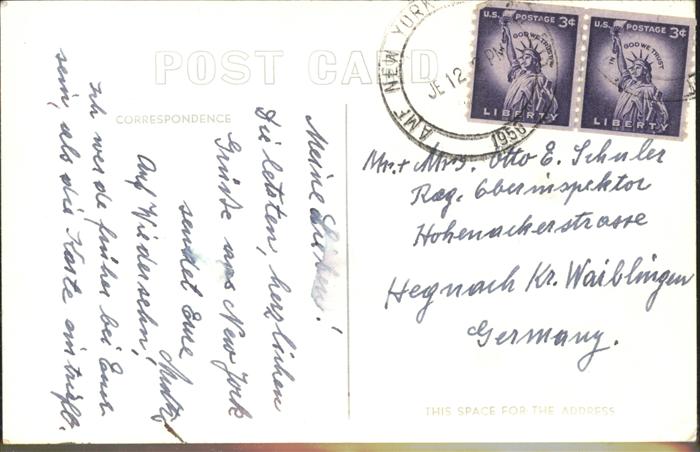 POST CARD
CORRESPONDENCE
Meine Lieben!
Die letzten, herzlichen
Grüße aus New York
sendet Eure
Mutti
Auf Wiedersehn!
Ich werde früher bei Euch
sein, als die Karte eintrifft.
NEW YORK
12
1956
U.S. POSTAGE 3¢
IN GOD WE TRUST
LIBERTY
U.S. POSTAGE 3¢
IN GOD WE TRUST
LIBERTY
Mr. + Mrs. Otto E. Schuler
Reg. Oberinspektor
Hohenackerstrasse
Hegnach Kr. Waiblingen
Germany.
THIS SPACE FOR THE ADDRESS